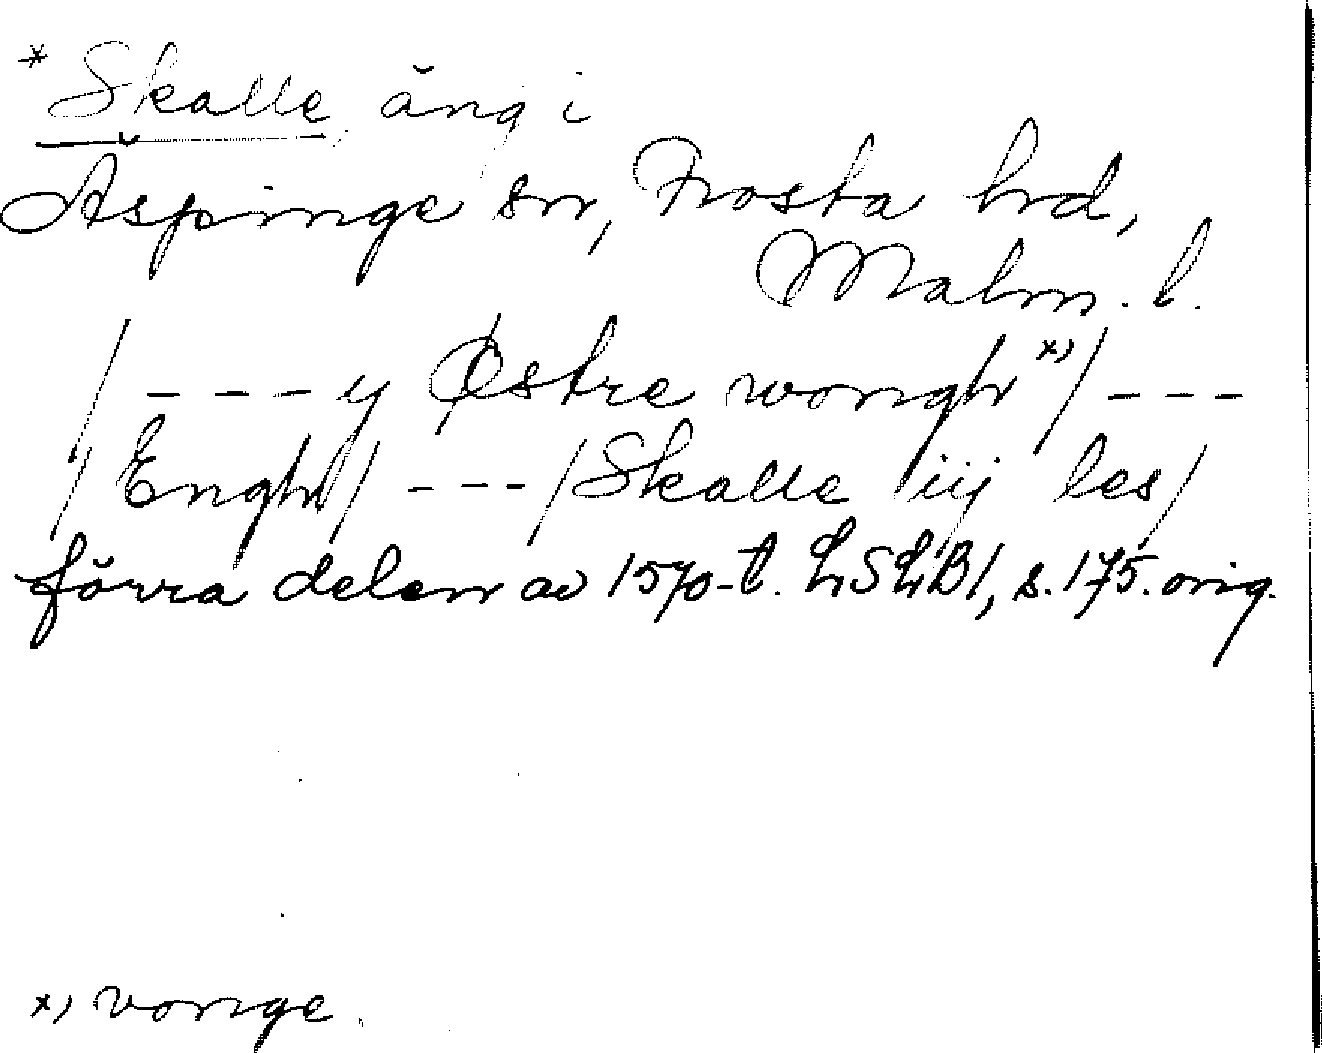 * Skalle, äng i
Äspinge sn, Frosta hd,
Malm. l.
/ - - - y Østre wongh *) / - - -
/ Engh / - - - / Skalle iij les /
förra delen av 1570-t. LSLB 1, s. 175. orig.
*) vonge.